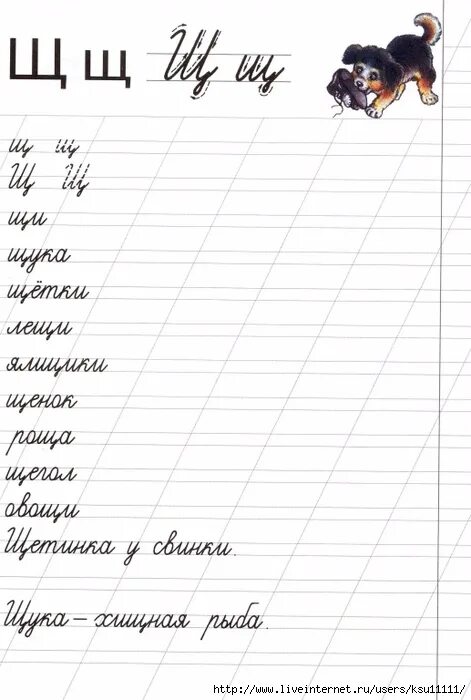 Щ щ Щ щ
щ щ
Щ Щ
щи
щука
щётки
лещи
ямщики
щенок
роща
щегол
овощи
Щетинка у свинки.
Щука – хищная рыба.
http://www.liveinternet.ru/users/ksu11111/